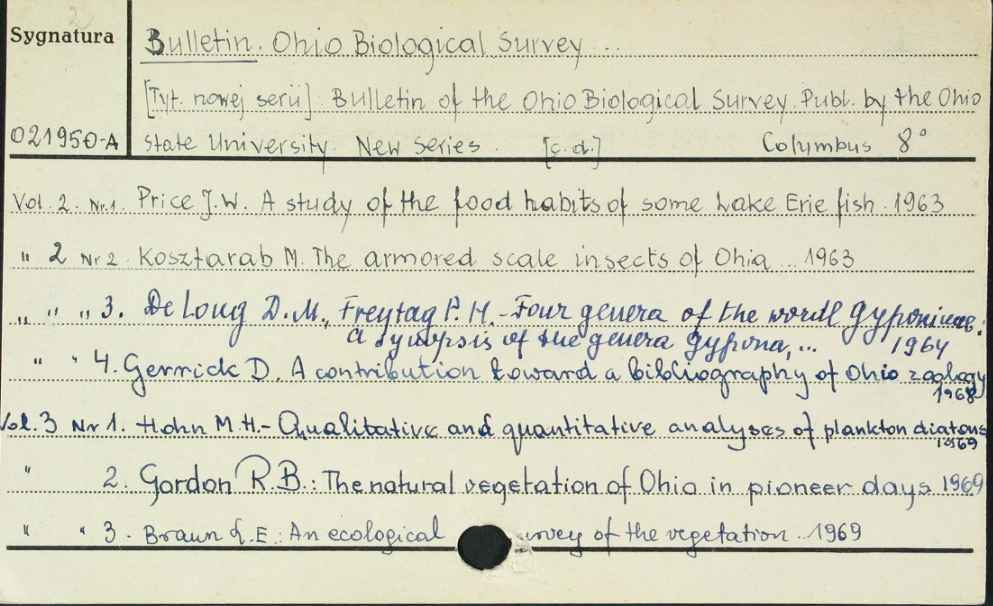 Sygnatura
Bulletin. Ohio Biological Survey ...
[Tyt. nowej serii] Bulletin of the Ohio Biological Survey. Publ. by the Ohio
021950-A State University. New Series. [c.d.] Columbus 8°
Vol. 2. Nr.1. Price J.W. A study of the food habits of some Lake Erie fish. 1963
" 2 Nr 2. Kosztarab M. The armored scale insects of Ohia ... 1963
" " " 3. De Loug D.M., Freytag P.H. - Four genera of the wordl Gyponinae:
a synopsis of the genera Gypona, ... 1964
" " 4. Gerrick D. A contribution toward a bibliography of Ohio zoology
1968
Vol. 3 Nr 1. Hohn M.H. - Qualitative and quantitative analyses of plankton diatoms
1969
" 2. Gordon R.B.: The natural vegetation of Ohio in pioneer days 1969
" " 3. Braun L.E.: An ecological urvey of the vegetation .. 1969